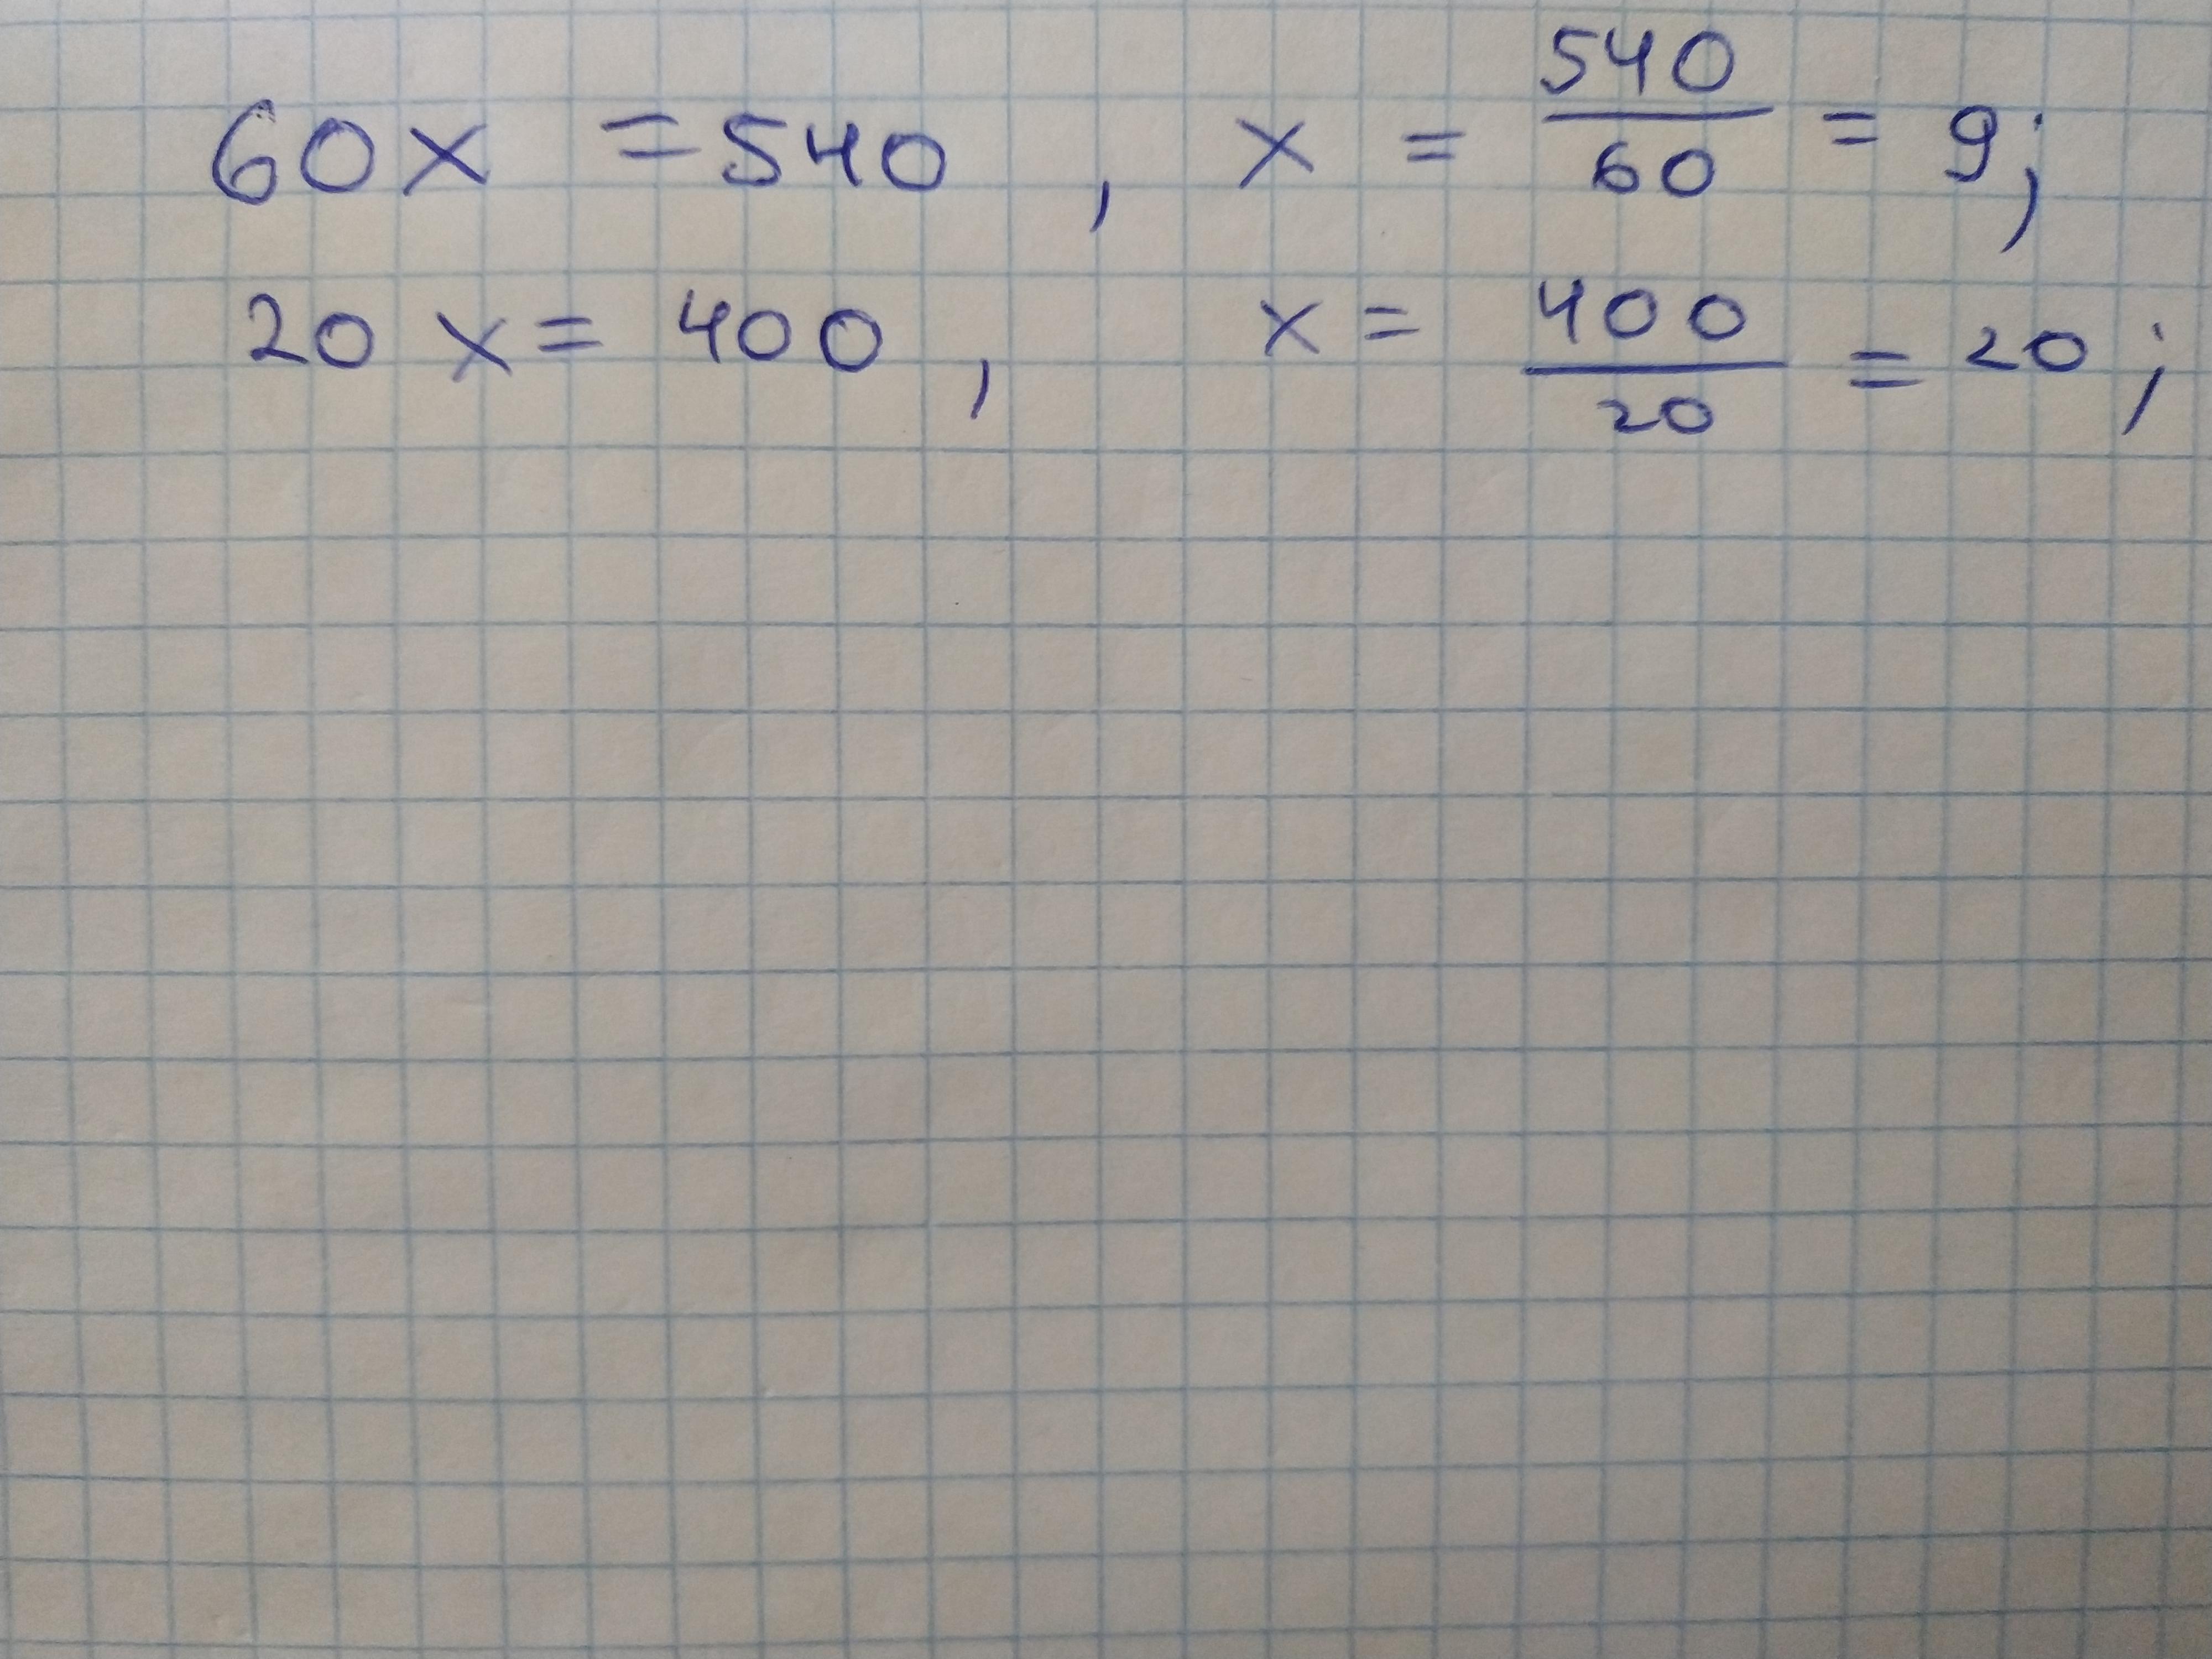 60x = 540 , x = 540/60 = 9;
20 x = 400 , x = 400/20 = 20 ;